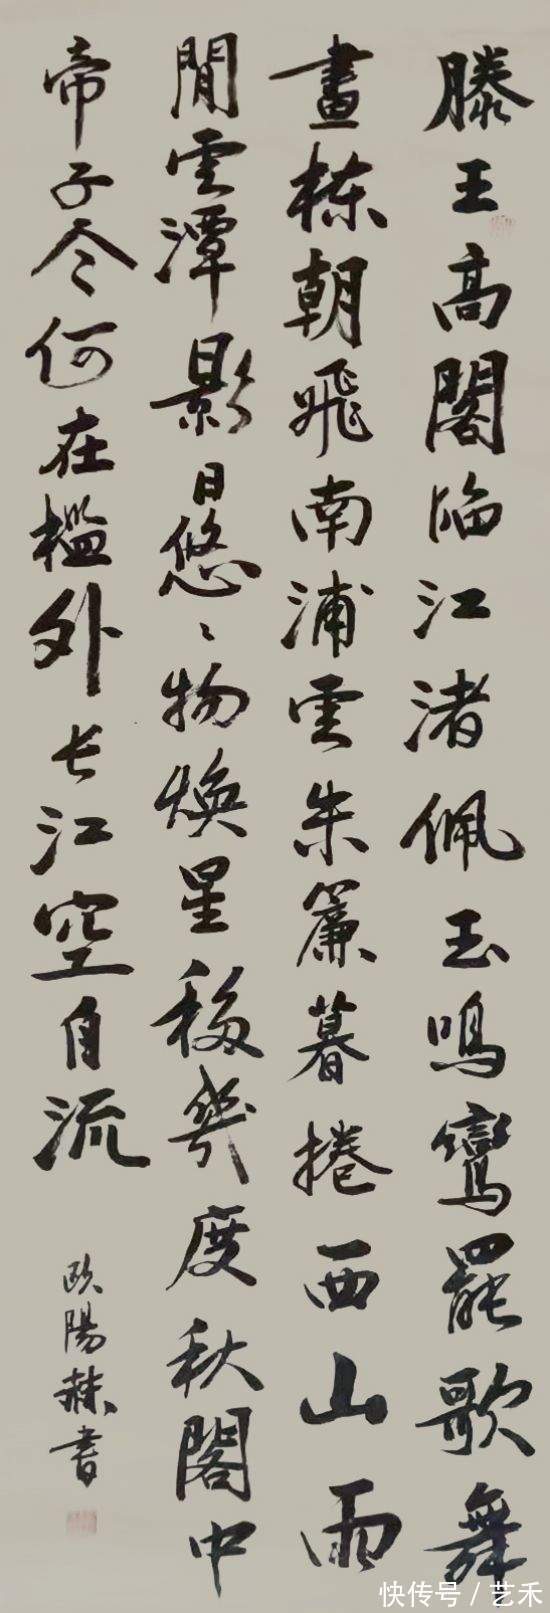 滕王高閣臨江渚佩玉鳴鸞罷歌舞
畫棟朝飛南浦雲朱簾暮捲西山雨
閒雲潭影日悠〻物煥星移幾度秋閣中
帝子今何在檻外长江空自流
歐陽赫書
快传号 / 艺禾